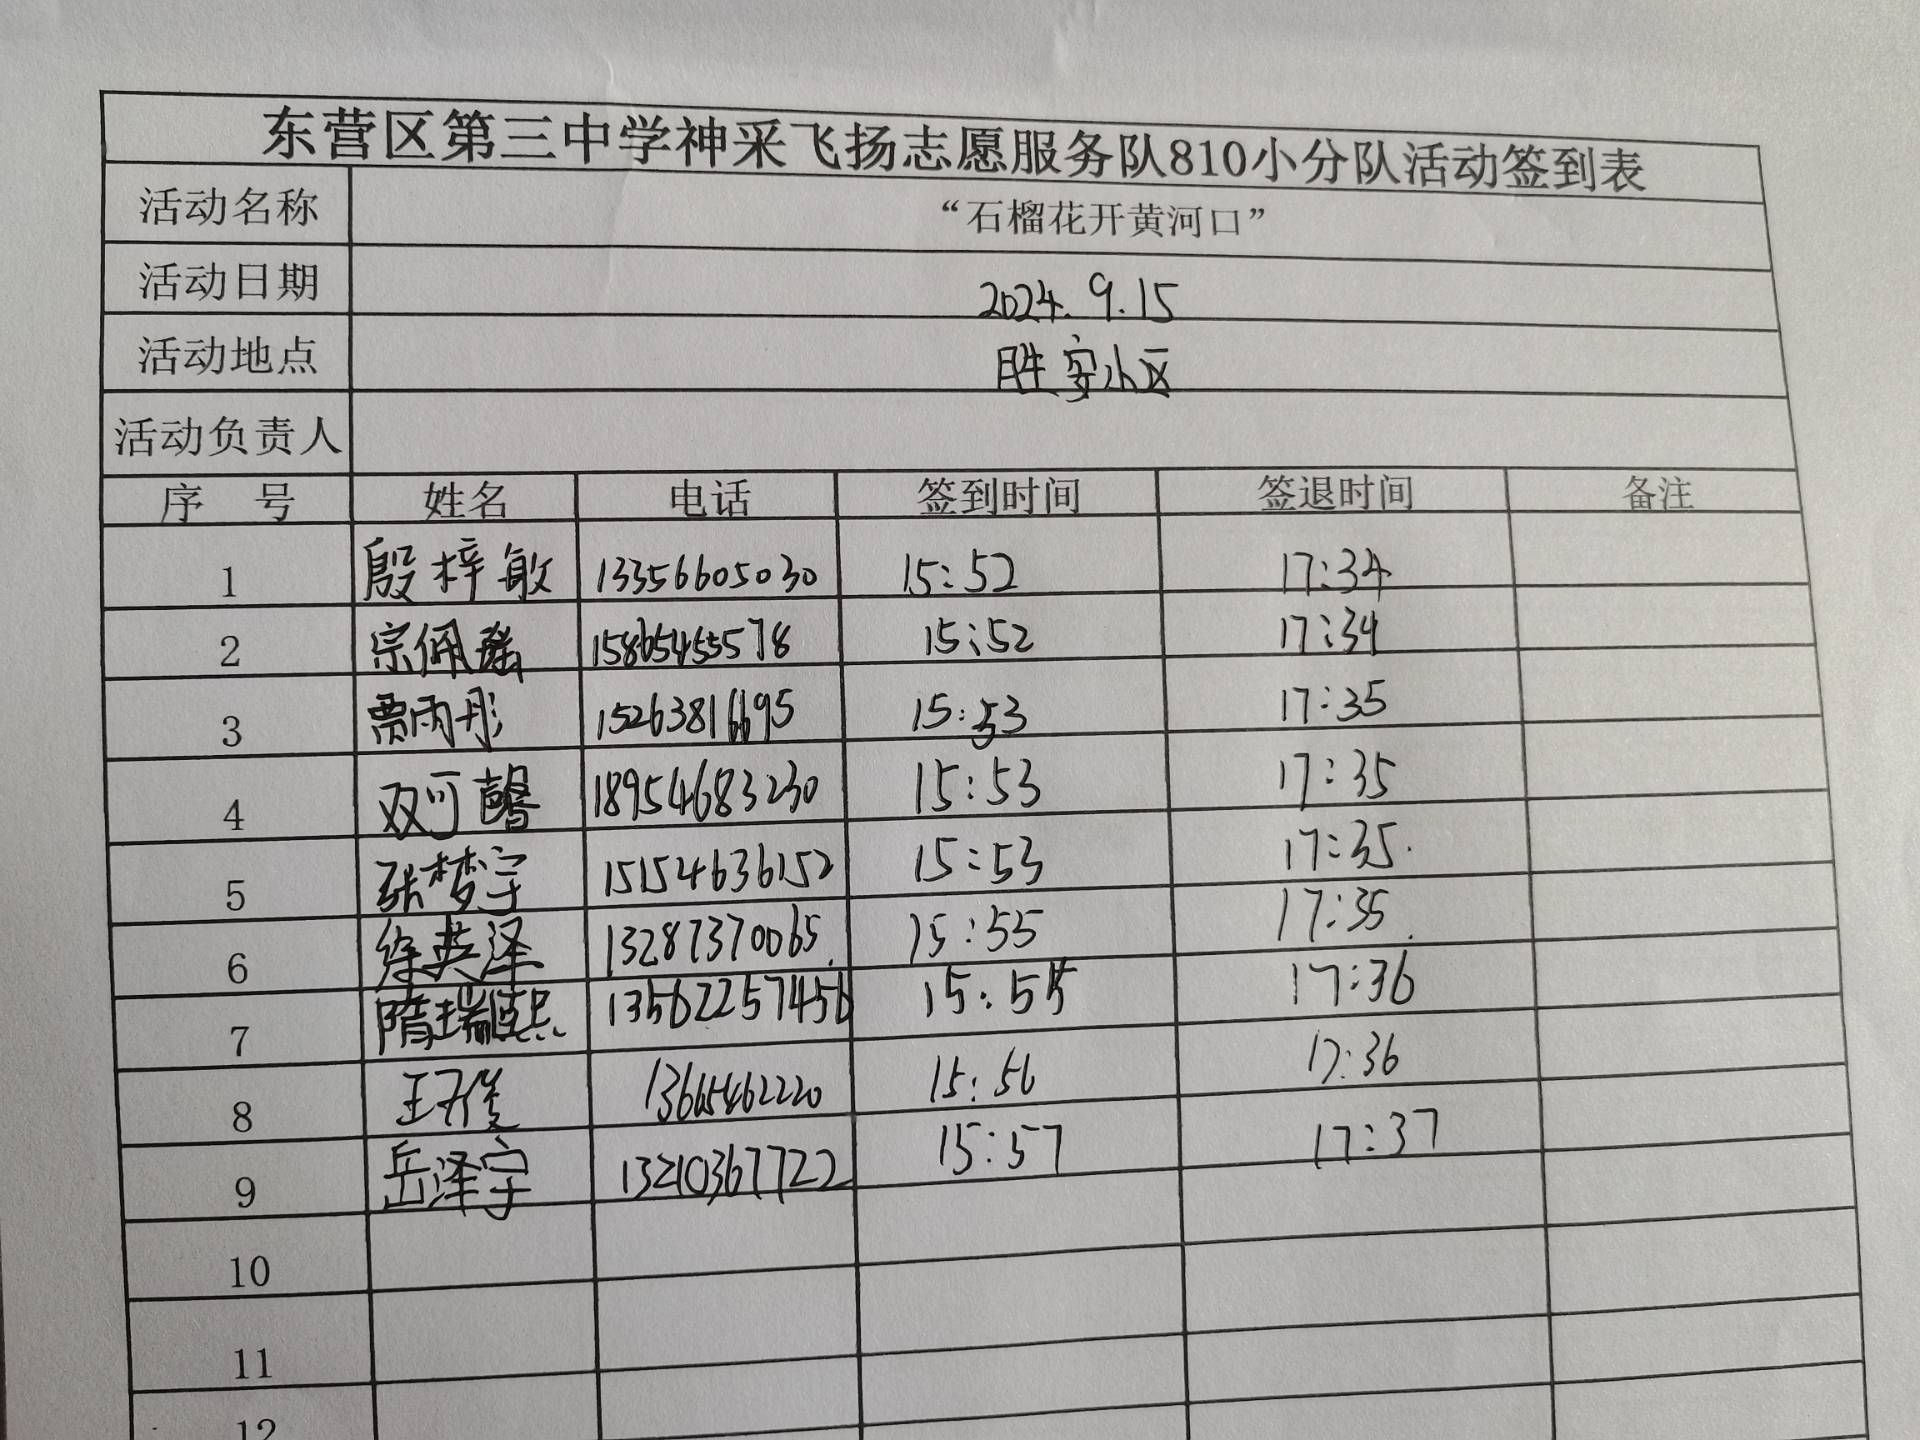 东营区第三中学神采飞扬志愿服务队810小分队活动签到表
活动名称 “石榴花开黄河口”
活动日期 2024.9.15
活动地点 胜安小区
活动负责人
序 号 姓名 电话 签到时间 签退时间 备注
1 殷梓敏 13356605030 15:52 17:34
2 宗佩瑶 15865455578 15:52 17:34
3 贾雨彤 15263816695 15:53 17:35
4 双可馨 18954683230 15:53 17:35
5 张梦宇 15154636152 15:53 17:35.
6 徐英泽 13287370065. 15:55 17:35.
7 隋瑞熙 13562257456 15:55 17:36
8 13665462220 15:56 17:36
9 岳泽宇 13210367722 15:57 17:37
10
11
12